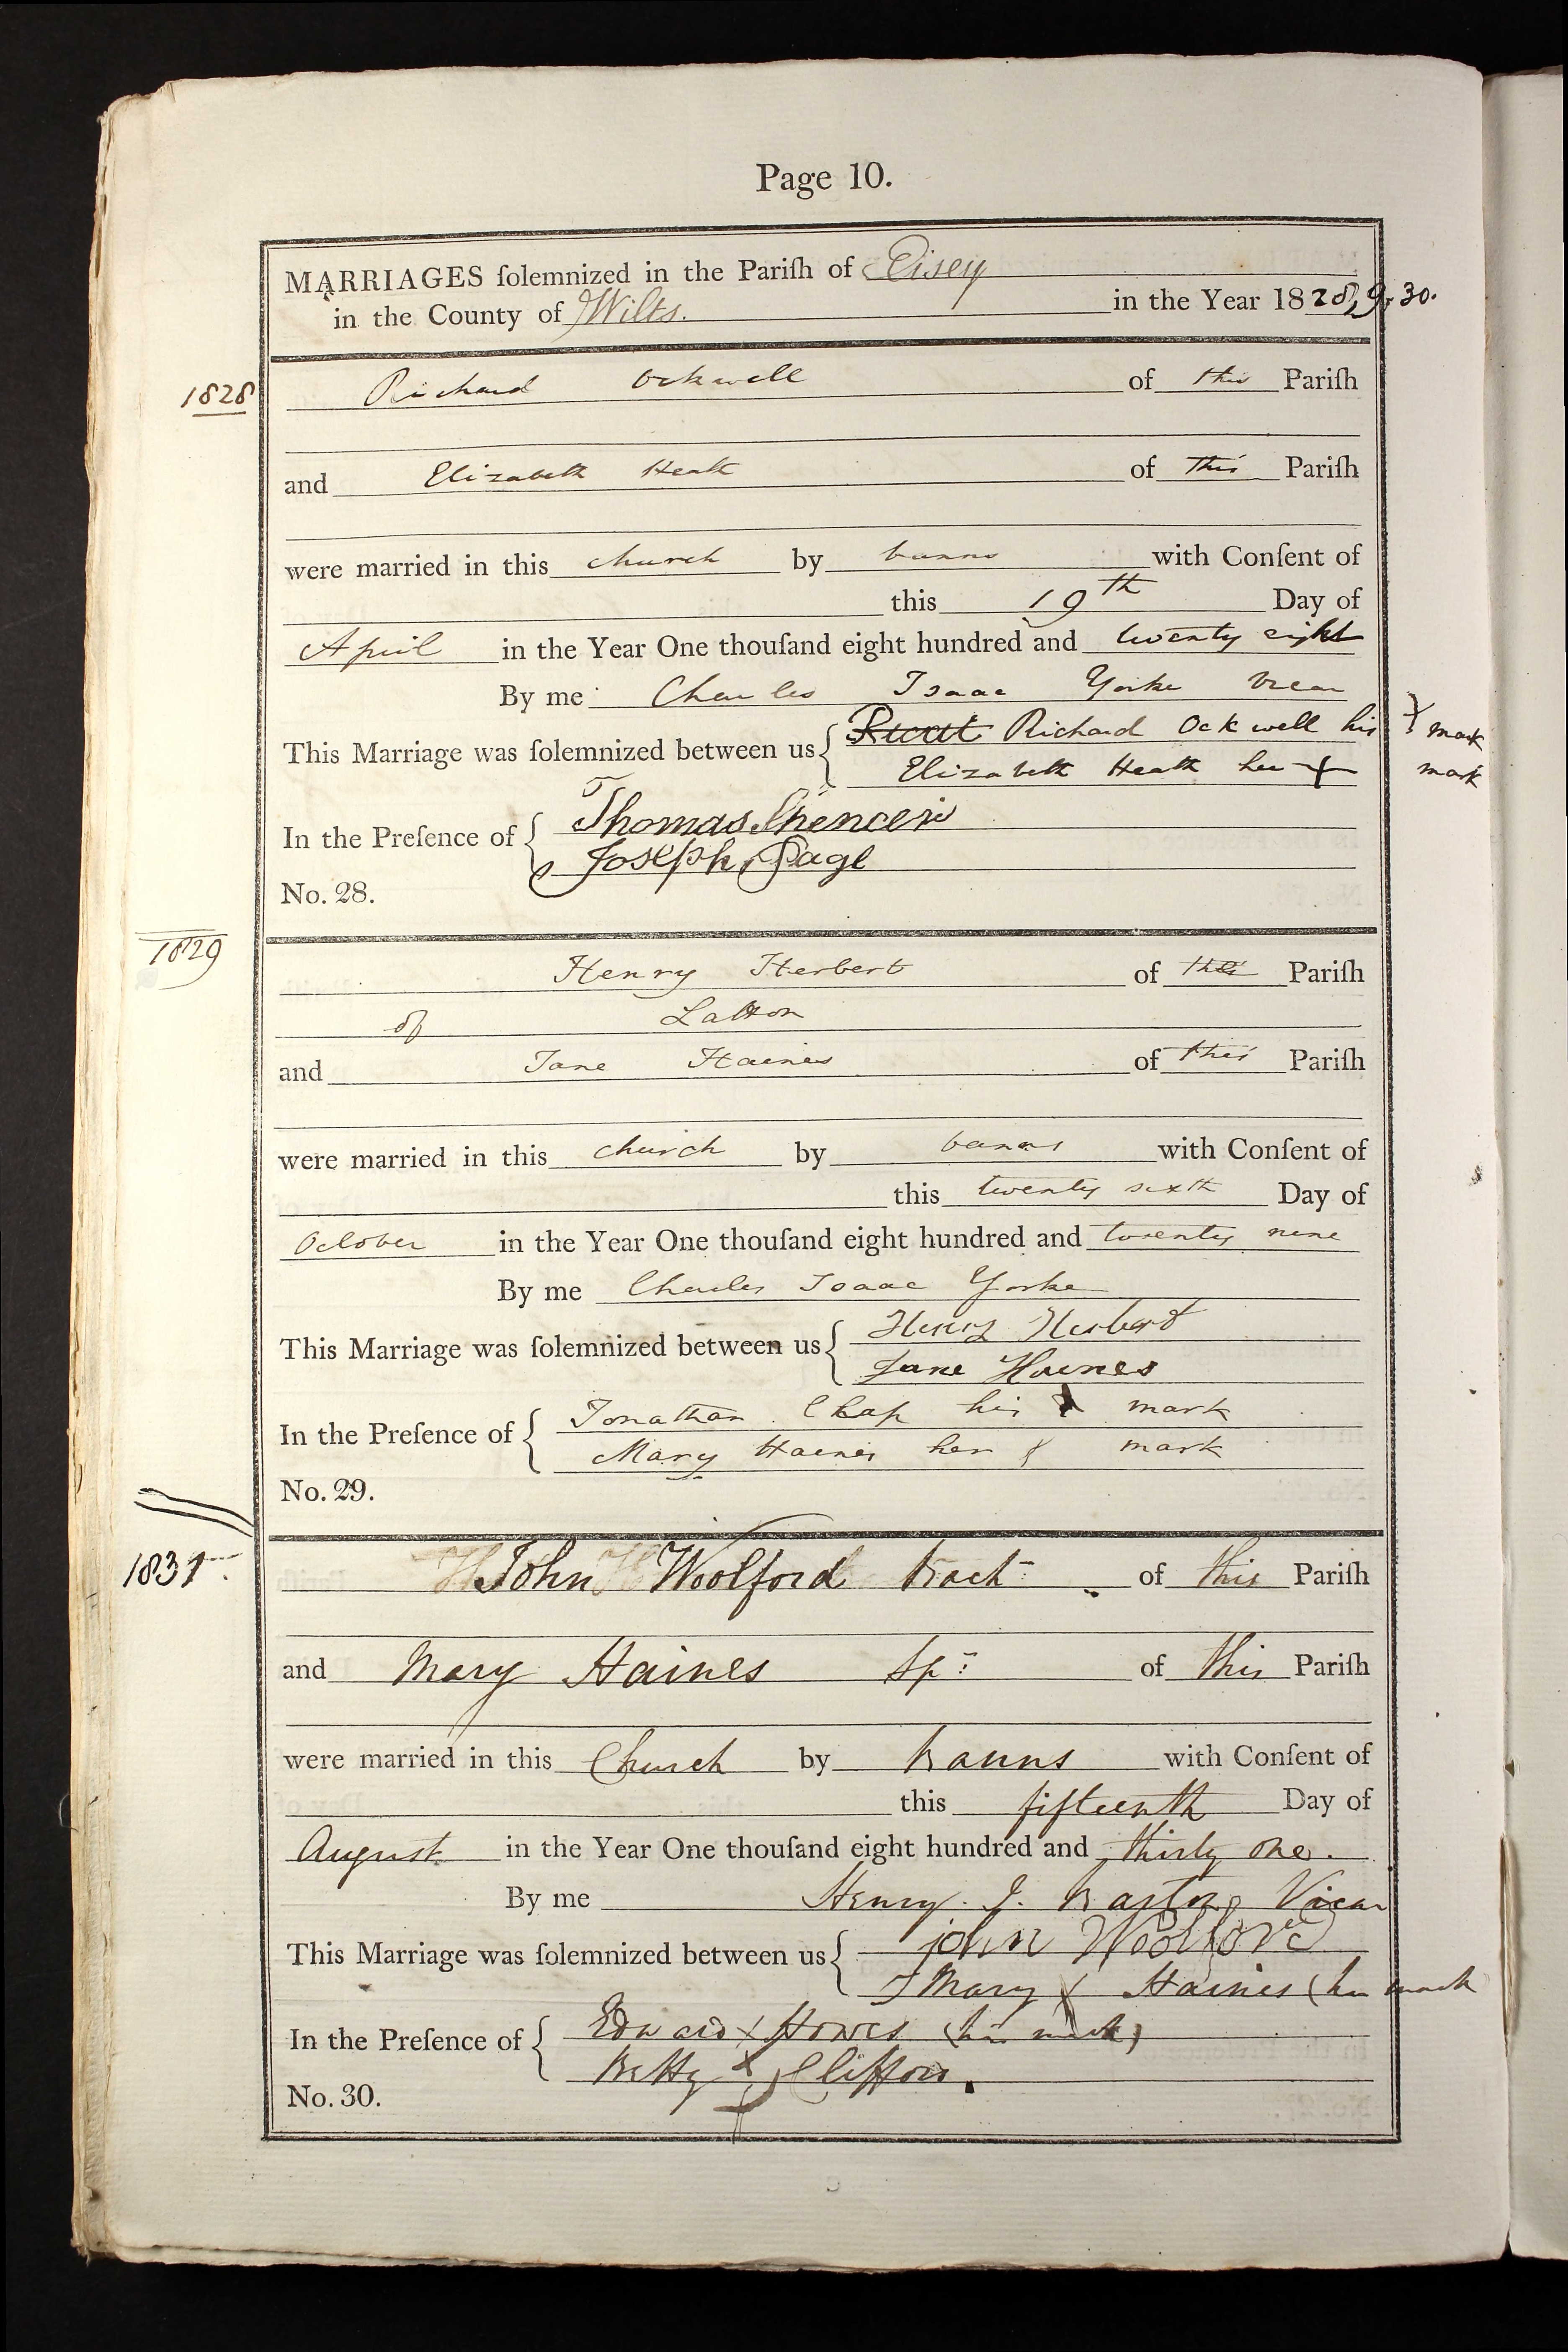 Page 10.
MARRIAGES ſolemnized in the Pariſh of Eisey
in the County of Wilts. in the Year 1828, 9, 30.
1828
Richard Ockwell of this Pariſh
and Elizabeth Heath of this Pariſh
were married in this church by banns with Conſent of
this 19th Day of
April in the Year One thouſand eight hundred and twenty eight
By me Charles Isaac Yorke Vicar
This Marriage was ſolemnized between us Richard Ockwell his X mark
Elizabeth Heath her X mark
In the Preſence of Thomas Spencer
Joseph Page
No. 28.
1829
Henry Herbert of this Pariſh
of Latton
and Jane Haines of this Pariſh
were married in this church by banns with Conſent of
this twenty sixth Day of
October in the Year One thouſand eight hundred and twenty nine
By me Charles Isaac Yorke
This Marriage was ſolemnized between us Henry Herbert
Jane Haines
In the Preſence of Jonathan Clap his X mark
Mary Haines her X mark
No. 29.
1831
John Woolford Bach: of this Pariſh
and Mary Haines Sp: of this Pariſh
were married in this Church by Banns with Conſent of
this fifteenth Day of
August in the Year One thouſand eight hundred and thirty one.
By me Henry J. Barton, Vicar
This Marriage was ſolemnized between us john Woolford
Mary X Haines (her mark
In the Preſence of Edward X Howes (his mark)
Betty X Clifton.
No. 30.